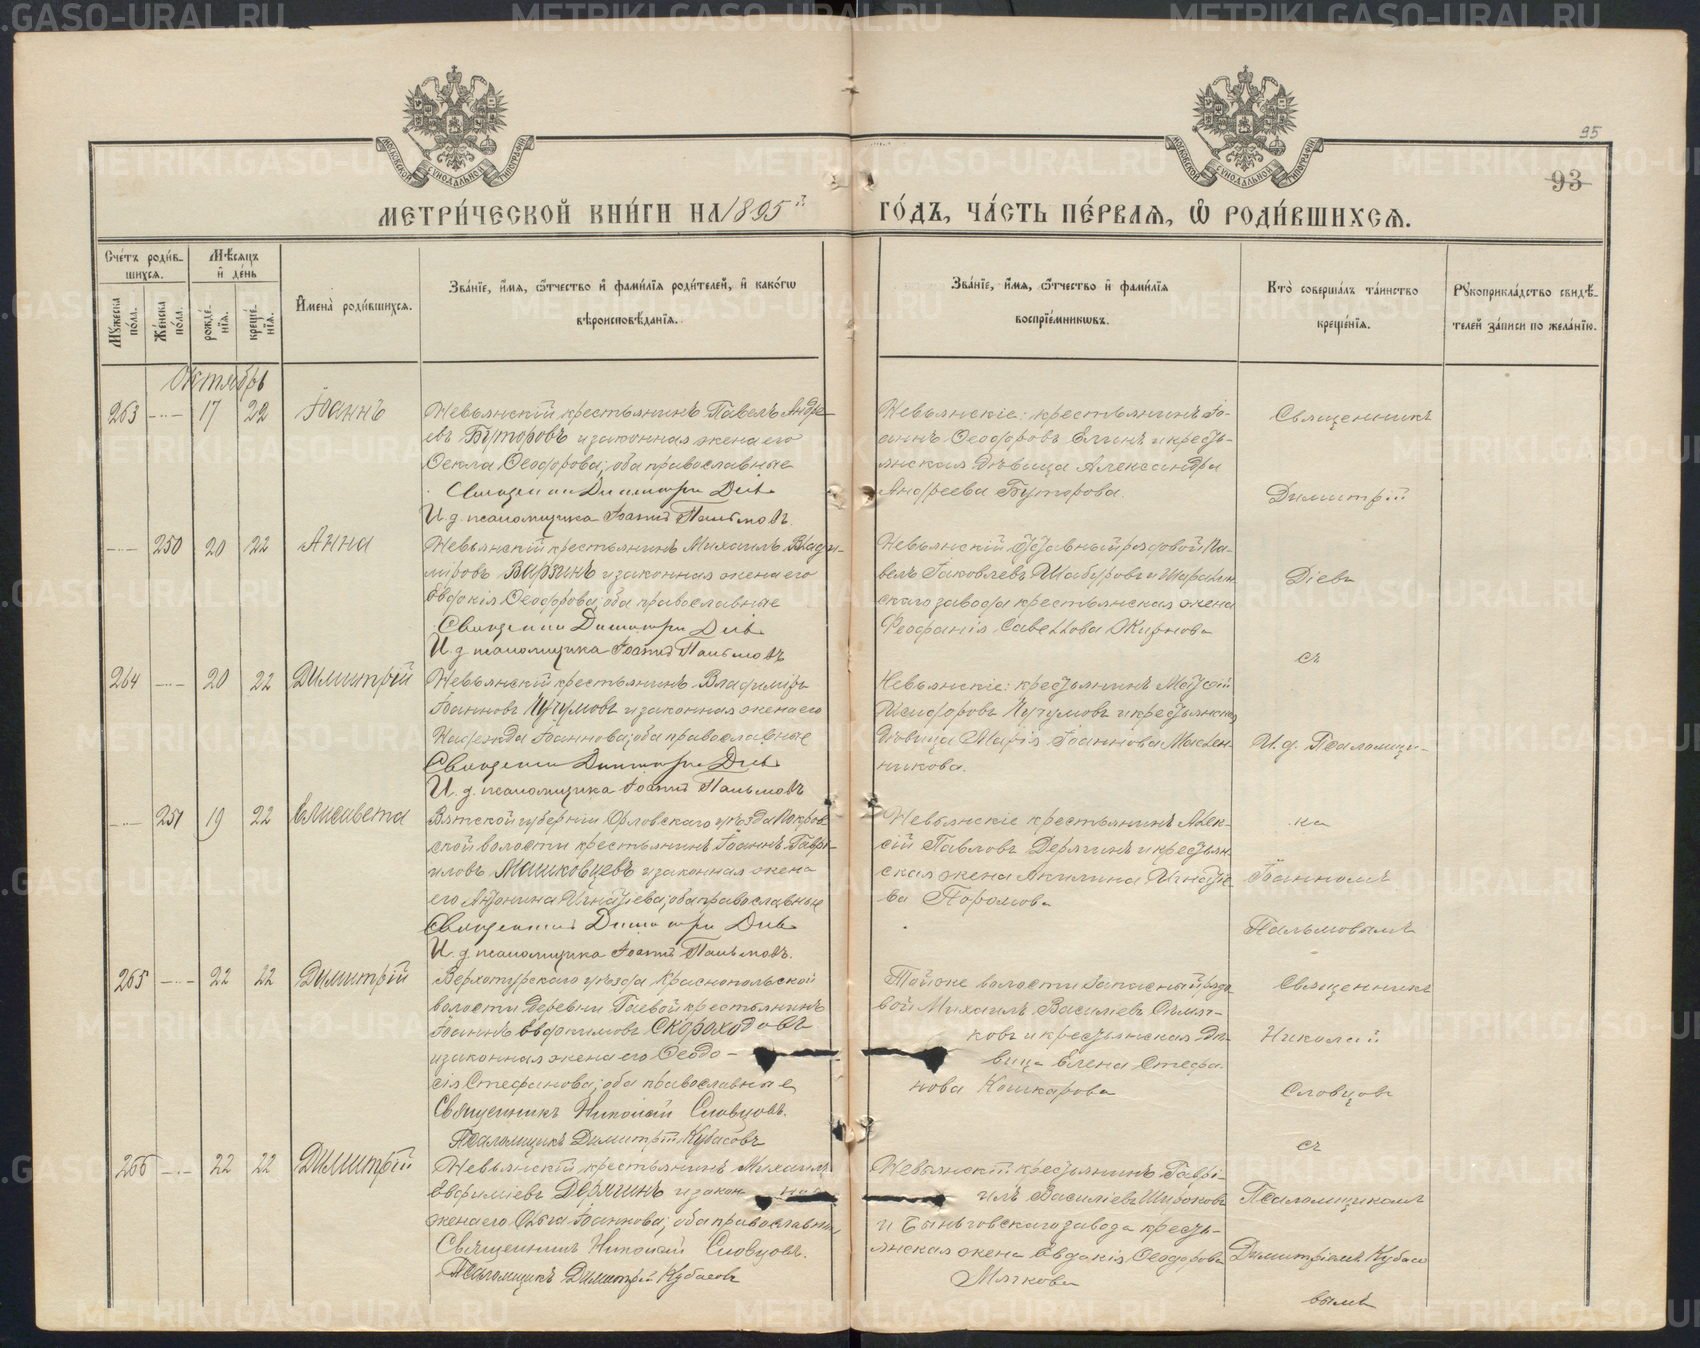 95
93
МЕТРИ́ЧЕСКОЙ КНИ́ГИ НА 1895й ГО́ДЪ, ЧА́СТЬ ПЕ́РВАЯ, Ѽ РОДИ́ВШИХСЯ.
Сче́тъ роди́в-
шихся.
Мѣ́сяцъ
и де́нь
Мꙋ́жеска
по́ла.
Же́нска
по́ла.
рожде́-
нїя.
креще́-
нїя.
Имена̀ роди́вшихся.
Зва́нїе, и́мя, ѻ́тчество и фами́лїя роди́телей, и како́гѡ
вѣроисповѣ́данїя.
Зва́нїе, и́мя, ѻ́тчество и фами́лїя
воспрїе́мникѡвъ.
Кто̀ соверша́лъ та́инство
креще́нїя.
Рꙋкоприкла́дство свидѣ́-
телей за́писи по жела́нїю.
Октябрь
263 17 22 Іоаннъ
Невьянскій крестьянинъ Павелъ Андре-
евъ Буторовъ и законная жена его
Ѳекла Ѳеодорова; оба православные
Священник Димитрий Диев
И. д. псаломщика Іоаннъ Пальмовъ
Невьянскіе: крестьянинъ Іо-
аннъ Ѳеодоровъ Елинъ и кресть-
янская дѣвица Александра
Андреева Буторова.
Священникъ
Димитрій
250 20 22 Анна
Невьянскій крестьянинъ Михаилъ Влади-
міровъ и законная жена его
Евдокія Ѳеодорова; оба православные
Священник Димитрий Диев
И. д. псаломщика Іоаннъ Пальмовъ
Невьянскій рядовой Па-
велъ Іаковлевъ Шабуровъ и
скаго завода крестьянская жена
Ѳеофанія Савелова
Діевъ
съ
264 20 22 Димитрій
Невьянскій крестьянинъ Владиміръ
Іоанновъ и законная жена его
Надежда Іоаннова; оба православные
Священник Димитрий Диев
И. д. псаломщика Іоаннъ Пальмовъ
Невьянскіе: крестьянинъ
Исидоровъ и крестьянская
дѣвица Марія Іоаннова Маслен-
никова.
И. д. Псаломщи-
ка
251 19 22 Елисавета
Вятской губерніи Орловскаго уѣзда Покров-
ской волости крестьянинъ Іоаннъ Гаврі-
иловъ Машковцевъ и законная жена
его Антонина Игнатіева; оба православные
Священник Димитрий Диев
И. д. псаломщика Іоаннъ Пальмовъ.
Невьянскіе крестьянинъ Алек-
сій Павловъ Дерягинъ и крестьян-
ская жена Акилина Игнатіе-
ва
Іоанномъ
Пальмовымъ
265 22 22 Димитрій
Верхотурскаго уѣзда Краснопольской
волости деревни Гаевой крестьянинъ
Іоаннъ Евдокимовъ Скороходовъ
и законная жена его Ѳеодо-
сія Стефанова; оба православные
Священникъ Николай Словцовъ.
Псаломщикъ Димитрій Кубасовъ
Тойже волости запасный рядо-
вой Михаилъ Василіевъ
ковъ и крестьянская дѣ-
вица Елена Стефа-
нова Кошкарова
Священникъ
Николай
Словцовъ
съ
266 22 22 Димитрій
Невьянскій крестьянинъ Михаилъ
Евфиміевъ Дерягинъ и законная
жена его Ольга Іоаннова; оба православные
Священникъ Николай Словцовъ.
Псаломщикъ Димитрій Кубасовъ
Невьянскій крестьянинъ Гаврі-
илъ Василіевъ Широковъ
и Быньговскаго завода кресть-
янская жена Евдокія Ѳеодорова
Мягкова
Псаломщикомъ
Димитріемъ Кубасо-
вымъ